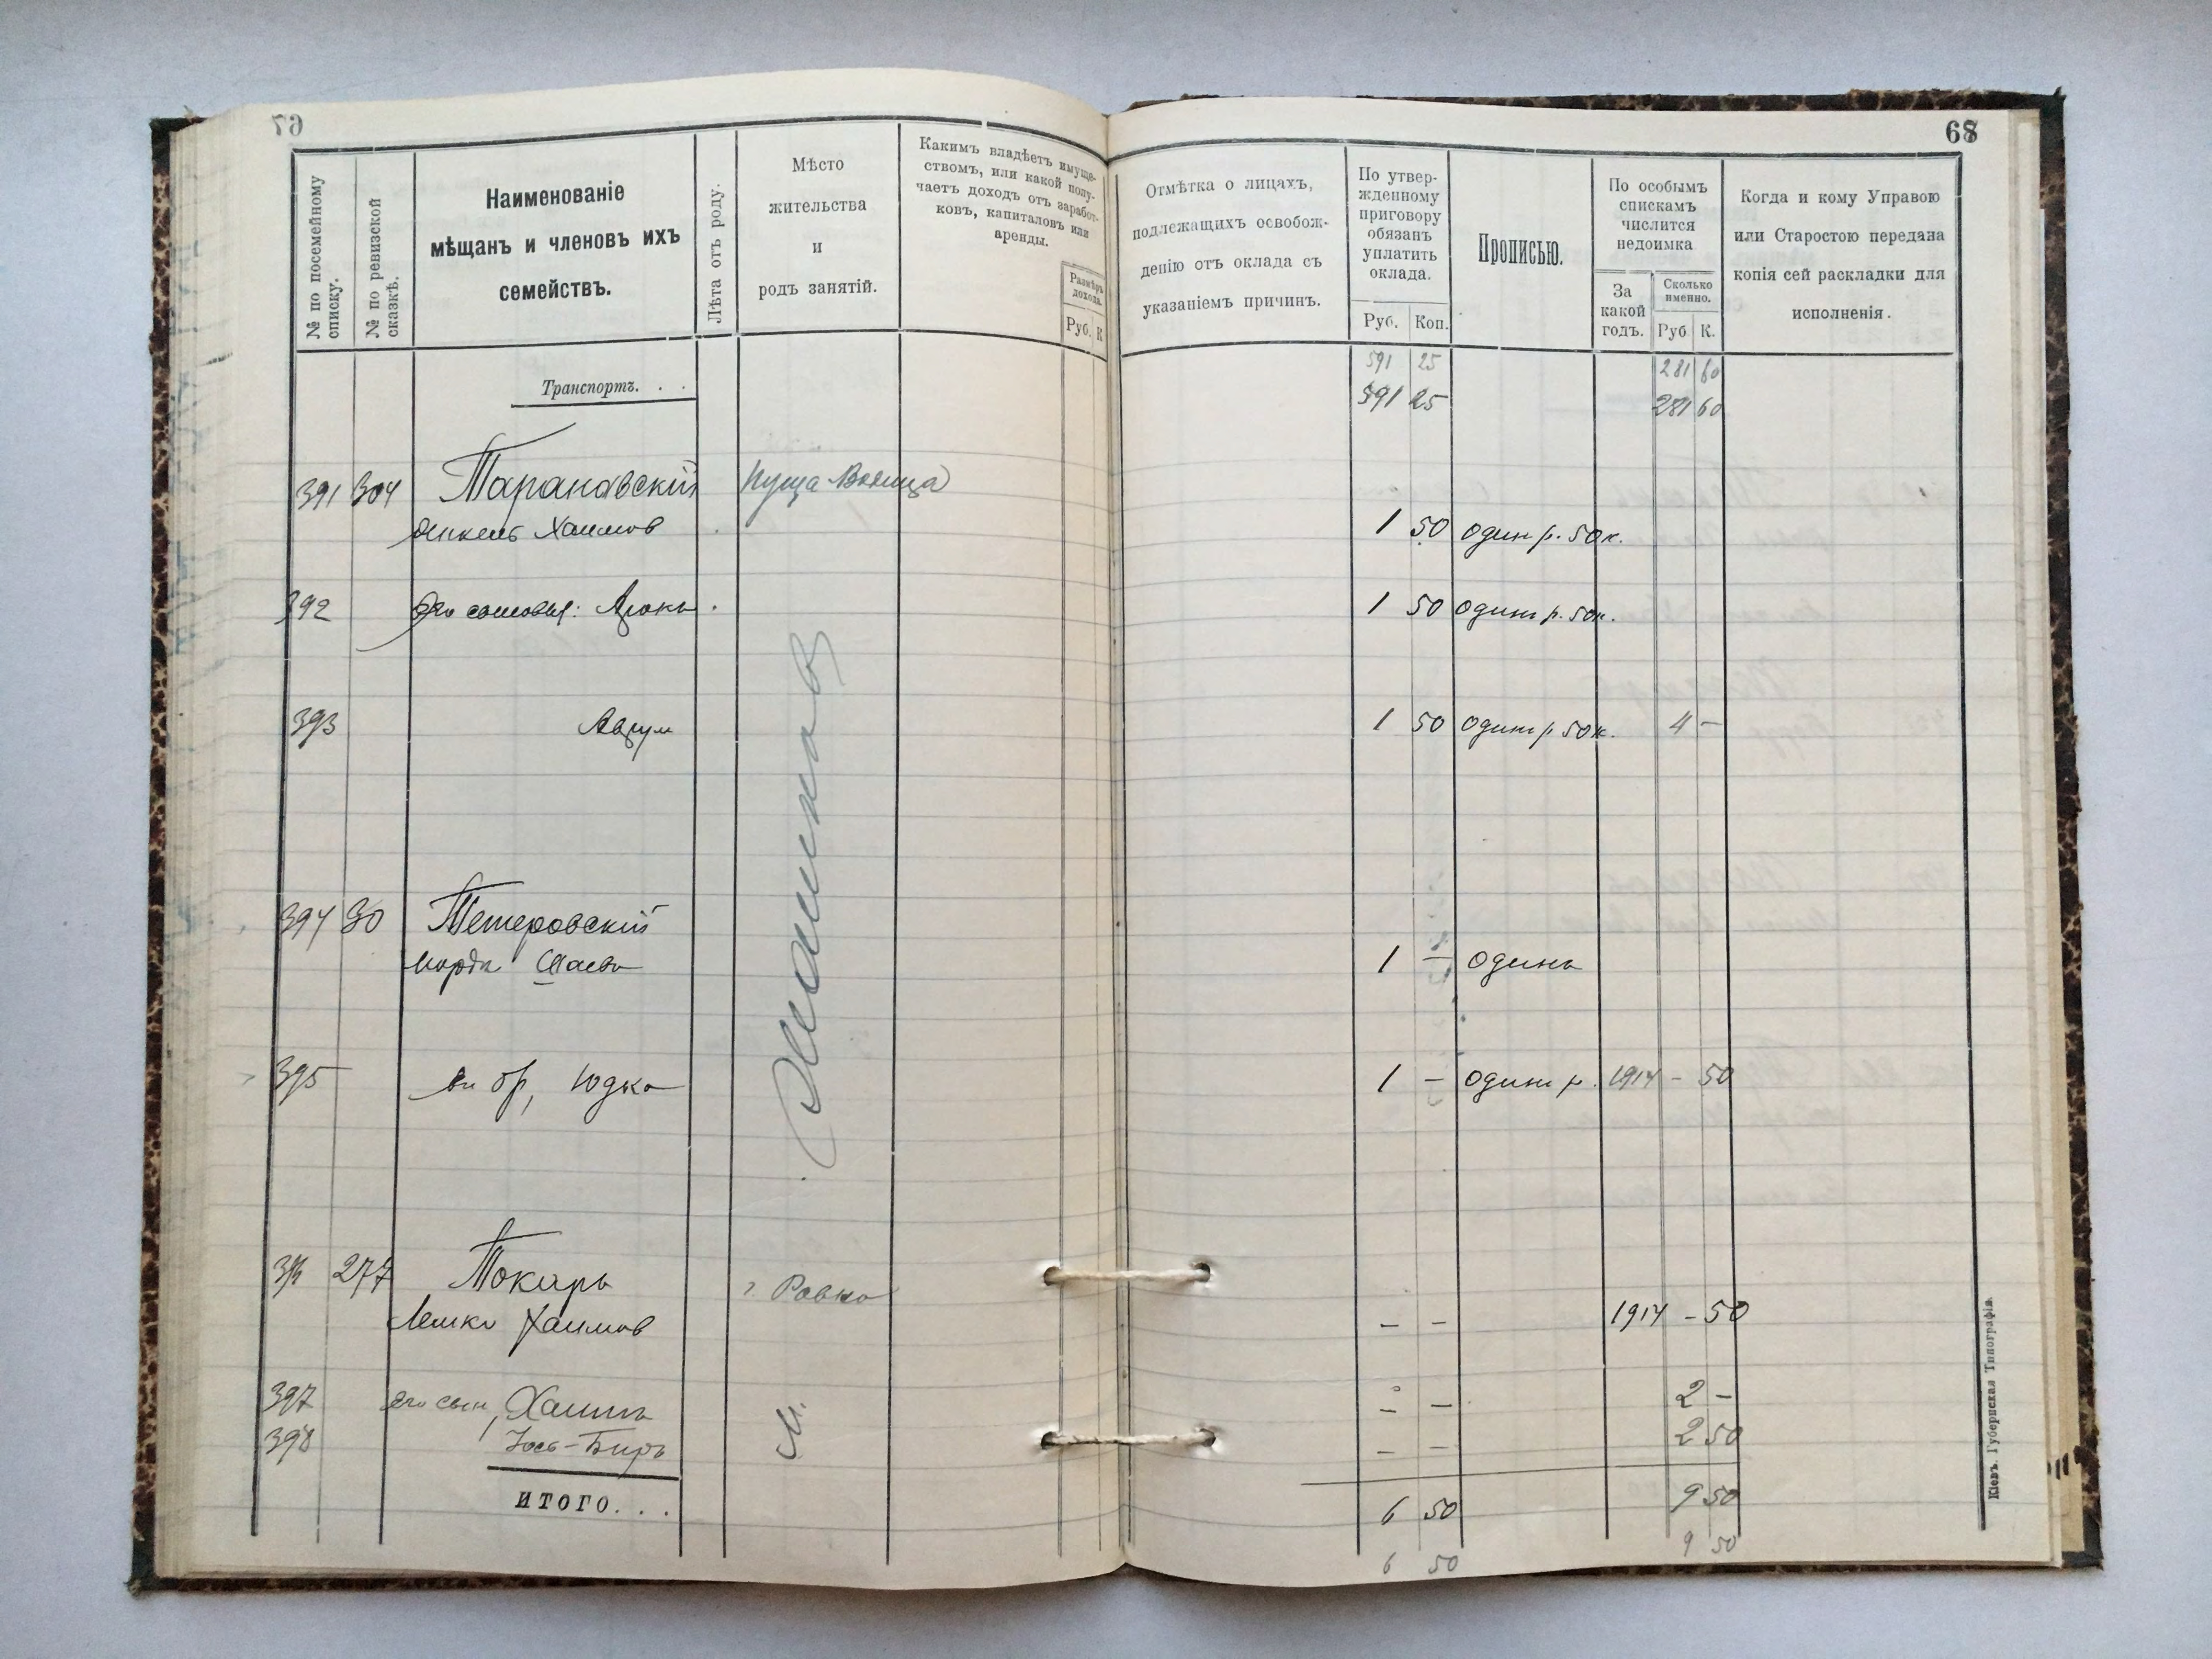 68
№ по посемейному
списку.
№ по ревизской
сказкѣ.
Наименованіе
мѣщанъ и членовъ ихъ
семействъ.
Лѣта отъ роду.
Мѣсто
жительства
и
родъ занятій.
Какимъ владѣетъ имуще-
ствомъ, или какой полу-
чаетъ доходъ отъ заработ-
ковъ, капиталовъ или
аренды.
Размѣръ
дохода.
Руб. К
Отмѣтка о лицахъ,
подлежащихъ освобож-
денію отъ оклада съ
указаніемъ причинъ.
По утвер-
жденному
приговору
обязанъ
уплатить
оклада.
Руб. Коп.
Прописью.
По особымъ
спискамъ
числится
недоимка
За
какой
годъ.
Сколько
именно.
Руб К.
Когда и кому Управою
или Старостою передана
копія сей раскладки для
исполненія.
591 25 281 60
Транспортъ. . . 591 25 281 60
391 304 Тарановскій Пуща Водица
Янкель Хаимов 1 50 один р. 50 к.
392 Его сыновья: Аронъ 1 50 один р. 50 к.
393 Аврум 1 50 один р 50 к. 4 —
394 30 Тетеровскій
Мордк Шаевъ 1 — одинъ
395 бр, Юдко 1 — один р. 1914 — 50
396 277 Токарь г Ровно
Лейко Хаимов — — 1914 — 50
397 его сын, Хаимъ — — 2 —
398 Іось-Беръ — — 2 50
ИТОГО. . . 6 50 9 50
6 50 9 50
Кіевъ. Губернская Типографія.